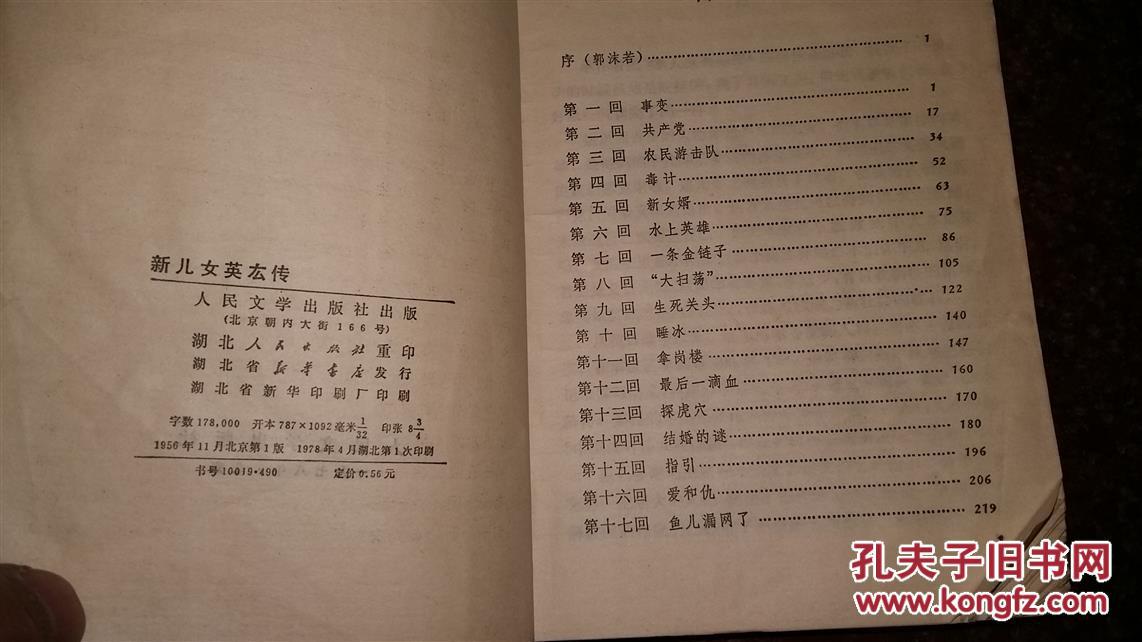 新儿女英厷传
人民文学出版社出版
(北京朝内大街166号)
湖北人民出版社重印
湖北省新华书店发行
湖北省新华印刷厂印刷
字数178,000 开本787×1092毫米1/32 印张8 3/4
1956年11月北京第1版 1978年4月湖北第1次印刷
书号10019·490 定价0.56元
序(郭沫若)……1
第一回 事变……1
第二回 共产党……17
第三回 农民游击队……34
第四回 毒计……52
第五回 新女婿……63
第六回 水上英雄……75
第七回 一条金链子……86
第八回 “大扫荡”……105
第九回 生死关头……122
第十回 睡冰……140
第十一回 拿岗楼……147
第十二回 最后一滴血……160
第十三回 探虎穴……170
第十四回 结婚的谜……180
第十五回 指引……196
第十六回 爱和仇……206
第十七回 鱼儿漏网了……219
孔夫子旧书网
www.kongfz.com